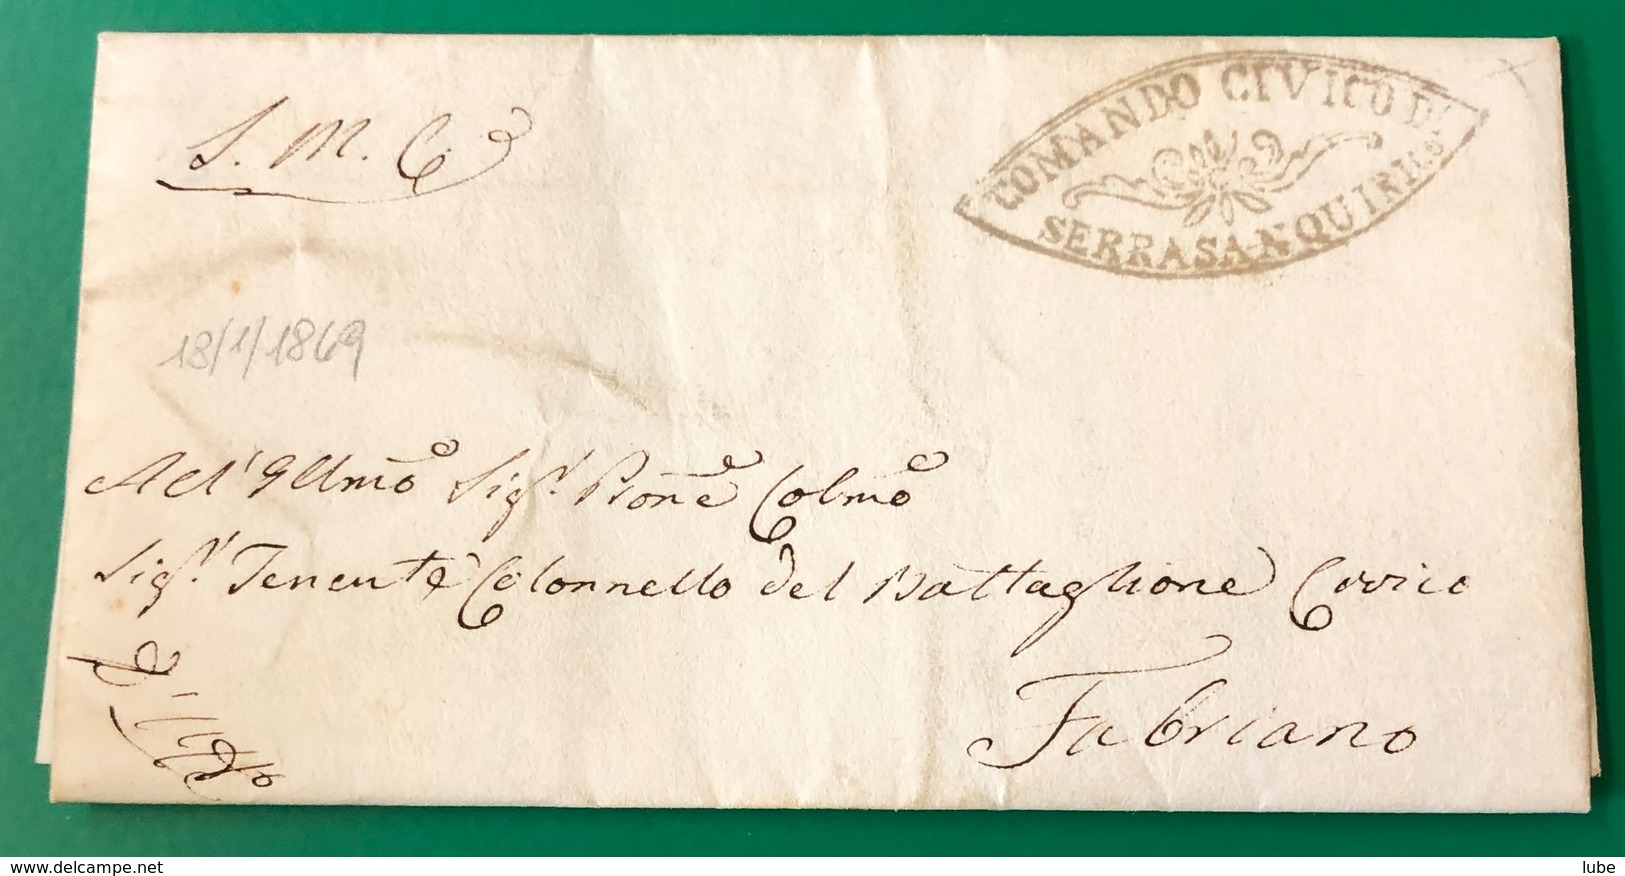 S. M. C
COMANDO CIVICO DI
SERRASANQUIRICO
13/1/1869
All' Illmo Sigr. Pone Colmo
Sigr. Tenente Colonnello del Battaglione Civico
Fabriano
delcampe.net
lube